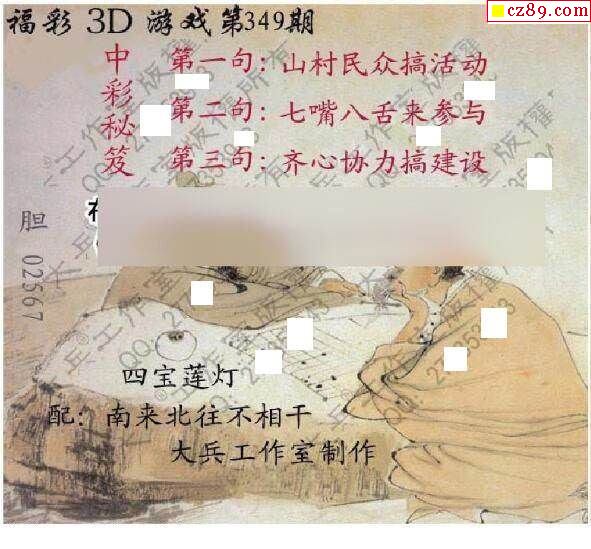 cz89.com
福彩 3D 游戏第349期
中彩秘笈
第一句：山村民众搞活动
第二句：七嘴八舌来参与
第三句：齐心协力搞建设
胆 02567
四宝莲灯
配：南来北往不相干
大兵工作室制作